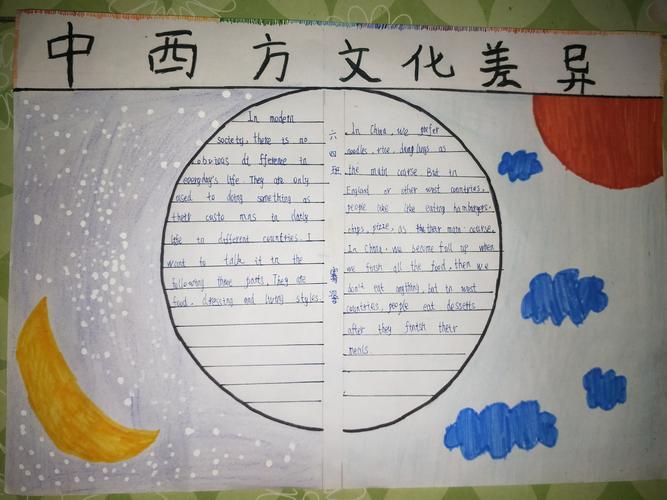 中西方文化差异
In modern
society, there is no
obvious di fference in
everyday's life They are only
used to doing something as
their custo mns in daily
life in different countries. I
want to talk it in the
following three parts. They are
food, dressing and living styles.
六四班
In China, we prefer
noodles, rice, dumplings as
the main course But in
England or other west countries,
people like like eating hamburgers.
chips, pizze, as the their main course.
In China. we become full up when
we finish all the food, then we
don't eat anything, but in west
countries, people eat dessetts
after they finish their
meals.